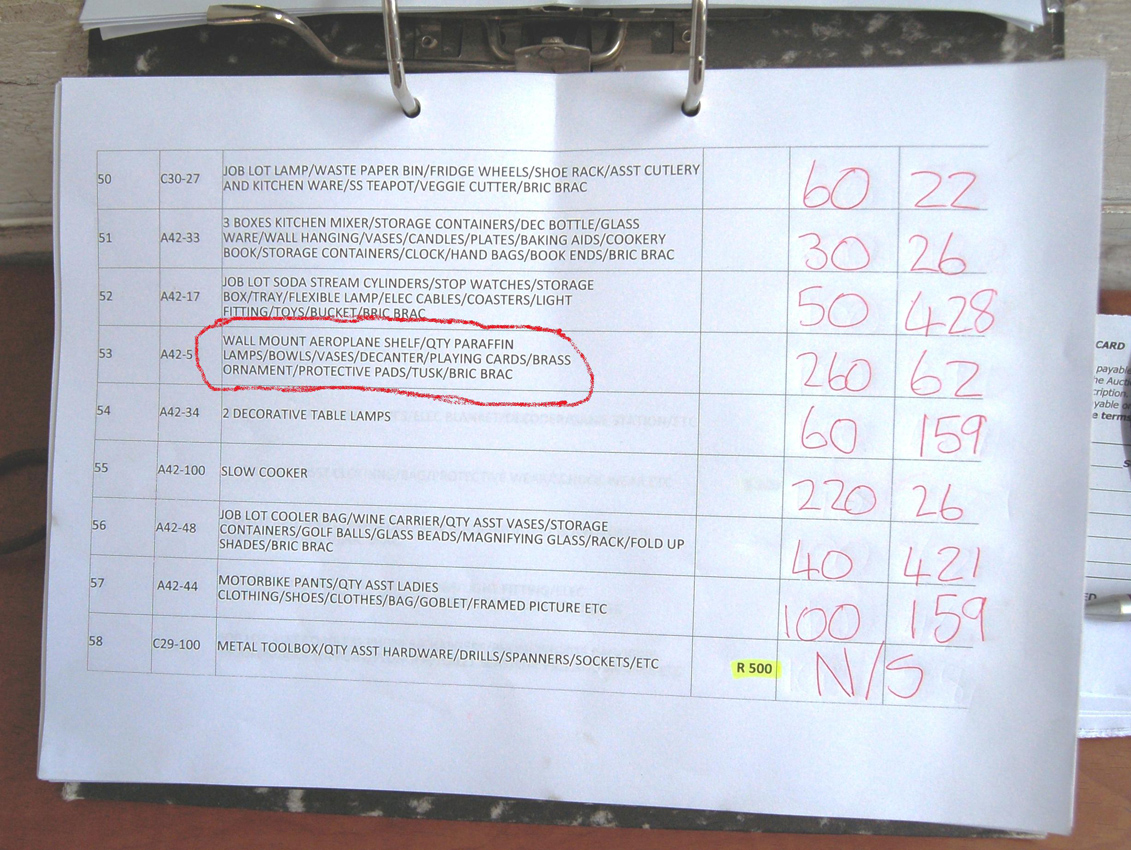 50 C30-27 JOB LOT LAMP/WASTE PAPER BIN/FRIDGE WHEELS/SHOE RACK/ASST CUTLERY
AND KITCHEN WARE/SS TEAPOT/VEGGIE CUTTER/BRIC BRAC
60 22
51 A42-33 3 BOXES KITCHEN MIXER/STORAGE CONTAINERS/DEC BOTTLE/GLASS
WARE/WALL HANGING/VASES/CANDLES/PLATES/BAKING AIDS/COOKERY
BOOK/STORAGE CONTAINERS/CLOCK/HAND BAGS/BOOK ENDS/BRIC BRAC
30 26
52 A42-17 JOB LOT SODA STREAM CYLINDERS/STOP WATCHES/STORAGE
BOX/TRAY/FLEXIBLE LAMP/ELEC CABLES/COASTERS/LIGHT
FITTING/TOYS/BUCKET/BRIC BRAC
50 428
53 A42-5 WALL MOUNT AEROPLANE SHELF/QTY PARAFFIN
LAMPS/BOWLS/VASES/DECANTER/PLAYING CARDS/BRASS
ORNAMENT/PROTECTIVE PADS/TUSK/BRIC BRAC
260 62
54 A42-34 2 DECORATIVE TABLE LAMPS
60 159
55 A42-100 SLOW COOKER
220 26
56 A42-48 JOB LOT COOLER BAG/WINE CARRIER/QTY ASST VASES/STORAGE
CONTAINERS/GOLF BALLS/GLASS BEADS/MAGNIFYING GLASS/RACK/FOLD UP
SHADES/BRIC BRAC
40 421
57 A42-44 MOTORBIKE PANTS/QTY ASST LADIES
CLOTHING/SHOES/CLOTHES/BAG/GOBLET/FRAMED PICTURE ETC
100 159
58 C29-100 METAL TOOLBOX/QTY ASST HARDWARE/DRILLS/SPANNERS/SOCKETS/ETC
R 500 N/S
CARD
payable